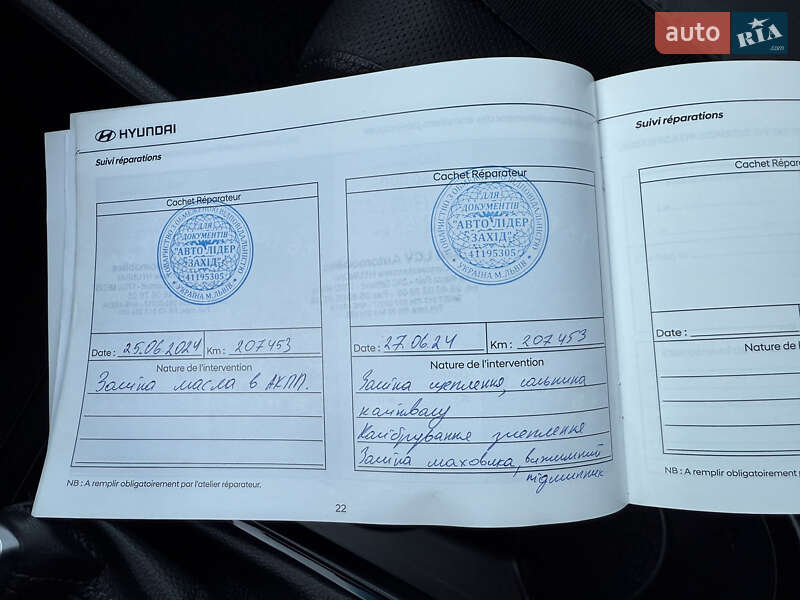 auto RIA.com
HYUNDAI
Suivi réparations
Cachet Réparateur
ТОВАРИСТВО З ОБМЕЖЕНОЮ ВІДПОВІДАЛЬНІСТЮ
ДЛЯ
ДОКУМЕНТІВ
"АВТО ЛІДЕР
ЗАХІД"
41195305
УКРАЇНА М. ЛЬВІВ
Date : 25.06.2024 Km : 207453
Nature de l'intervention
Заміна масла в АКПП.
NB : A remplir obligatoirement par l'atelier réparateur.
Cachet Réparateur
ТОВАРИСТВО З ОБМЕЖЕНОЮ ВІДПОВІДАЛЬНІСТЮ
ДЛЯ
ДОКУМЕНТІВ
"АВТО ЛІДЕР
ЗАХІД"
41195305
УКРАЇНА М. ЛЬВІВ
Date : 27.06.24 Km : 207453
Nature de l'intervention
Заміна щеплення, сальника
колінвалу
Калібрування зчеплення
Заміна маховика, вижимний
підшипник
22
Suivi réparations
Cachet Répara
Date :
Nature de l
NB : A remplir obligatoirement p